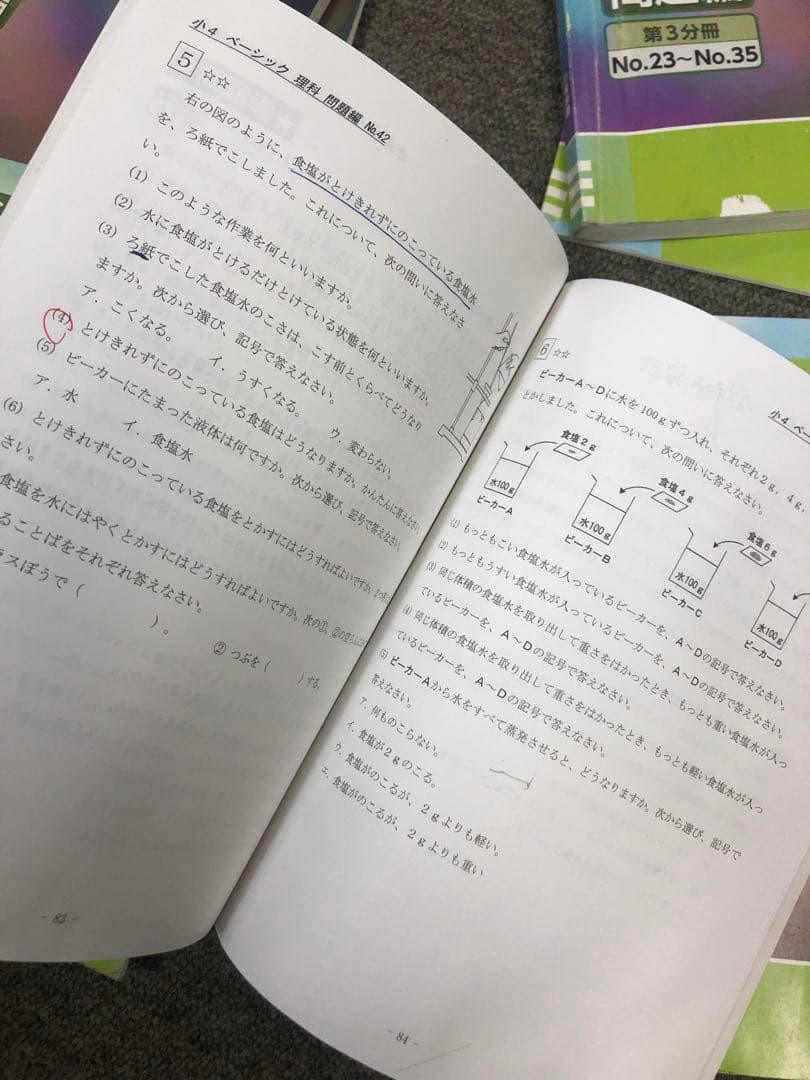 第3分冊
No.23〜No.35
小4 ベーシック 理科 問題編 No.42
5 ☆☆
右の図のように、食塩がとけきれずにのこっている食塩水
を、ろ紙でこしました。これについて、次の問いに答えなさ
い。
(1) このような作業を何といいますか。
(2) 水に食塩がとけるだけとけている状態を何といいますか。
(3) ろ紙でこした食塩水のこさは、こす前とくらべてどうなり
ますか。次から選び、記号で答えなさい。
ア. こくなる。 イ. うすくなる。 ウ. 変わらない。
(4) とけきれずにのこっている食塩はどうなりますか。かんたんに答えなさい。
(5) ビーカーにたまった液体は何ですか。次から選び、記号で答えなさい。
ア. 水 イ. 食塩水
(6) とけきれずにのこっている食塩をとかすにはどうすればよいですか。
さい。
食塩を水にはやくとかすにはどうすればよいですか。次の①、②の
ることばをそれぞれ答えなさい。
ラスぼうで( )。
② つぶを( )する。
- 83 -
小4 ベー
6 ☆☆
ビーカーA〜Dに水を100gずつ入れ、それぞれ2g, 4g,
とかしました。これについて、次の問いに答えなさい。
食塩2g
水100g
ビーカーA
食塩4g
水100g
ビーカーB
食塩6g
水100g
ビーカーC
水100g
ビーカーD
(1) もっともこい食塩水が入っているビーカーを、A〜Dの記号で答えなさい。
(2) もっともうすい食塩水が入っているビーカーを、A〜Dの記号で答えなさい。
(3) 同じ体積の食塩水を取り出して重さをはかったとき、もっとも重い食塩水が入っ
ているビーカーを、A〜Dの記号で答えなさい。
(4) 同じ体積の食塩水を取り出して重さをはかったとき、もっとも軽い食塩水が入っ
ているビーカーを、A〜Dの記号で答えなさい。
(5) ビーカーAから水をすべて蒸発させると、どうなりますか。次から選び、記号で
答えなさい。
ア. 何ものこらない。
イ. 食塩が2gのこる。
ウ. 食塩がのこるが、2gよりも軽い。
エ. 食塩がのこるが、2gよりも重い
- 84 -